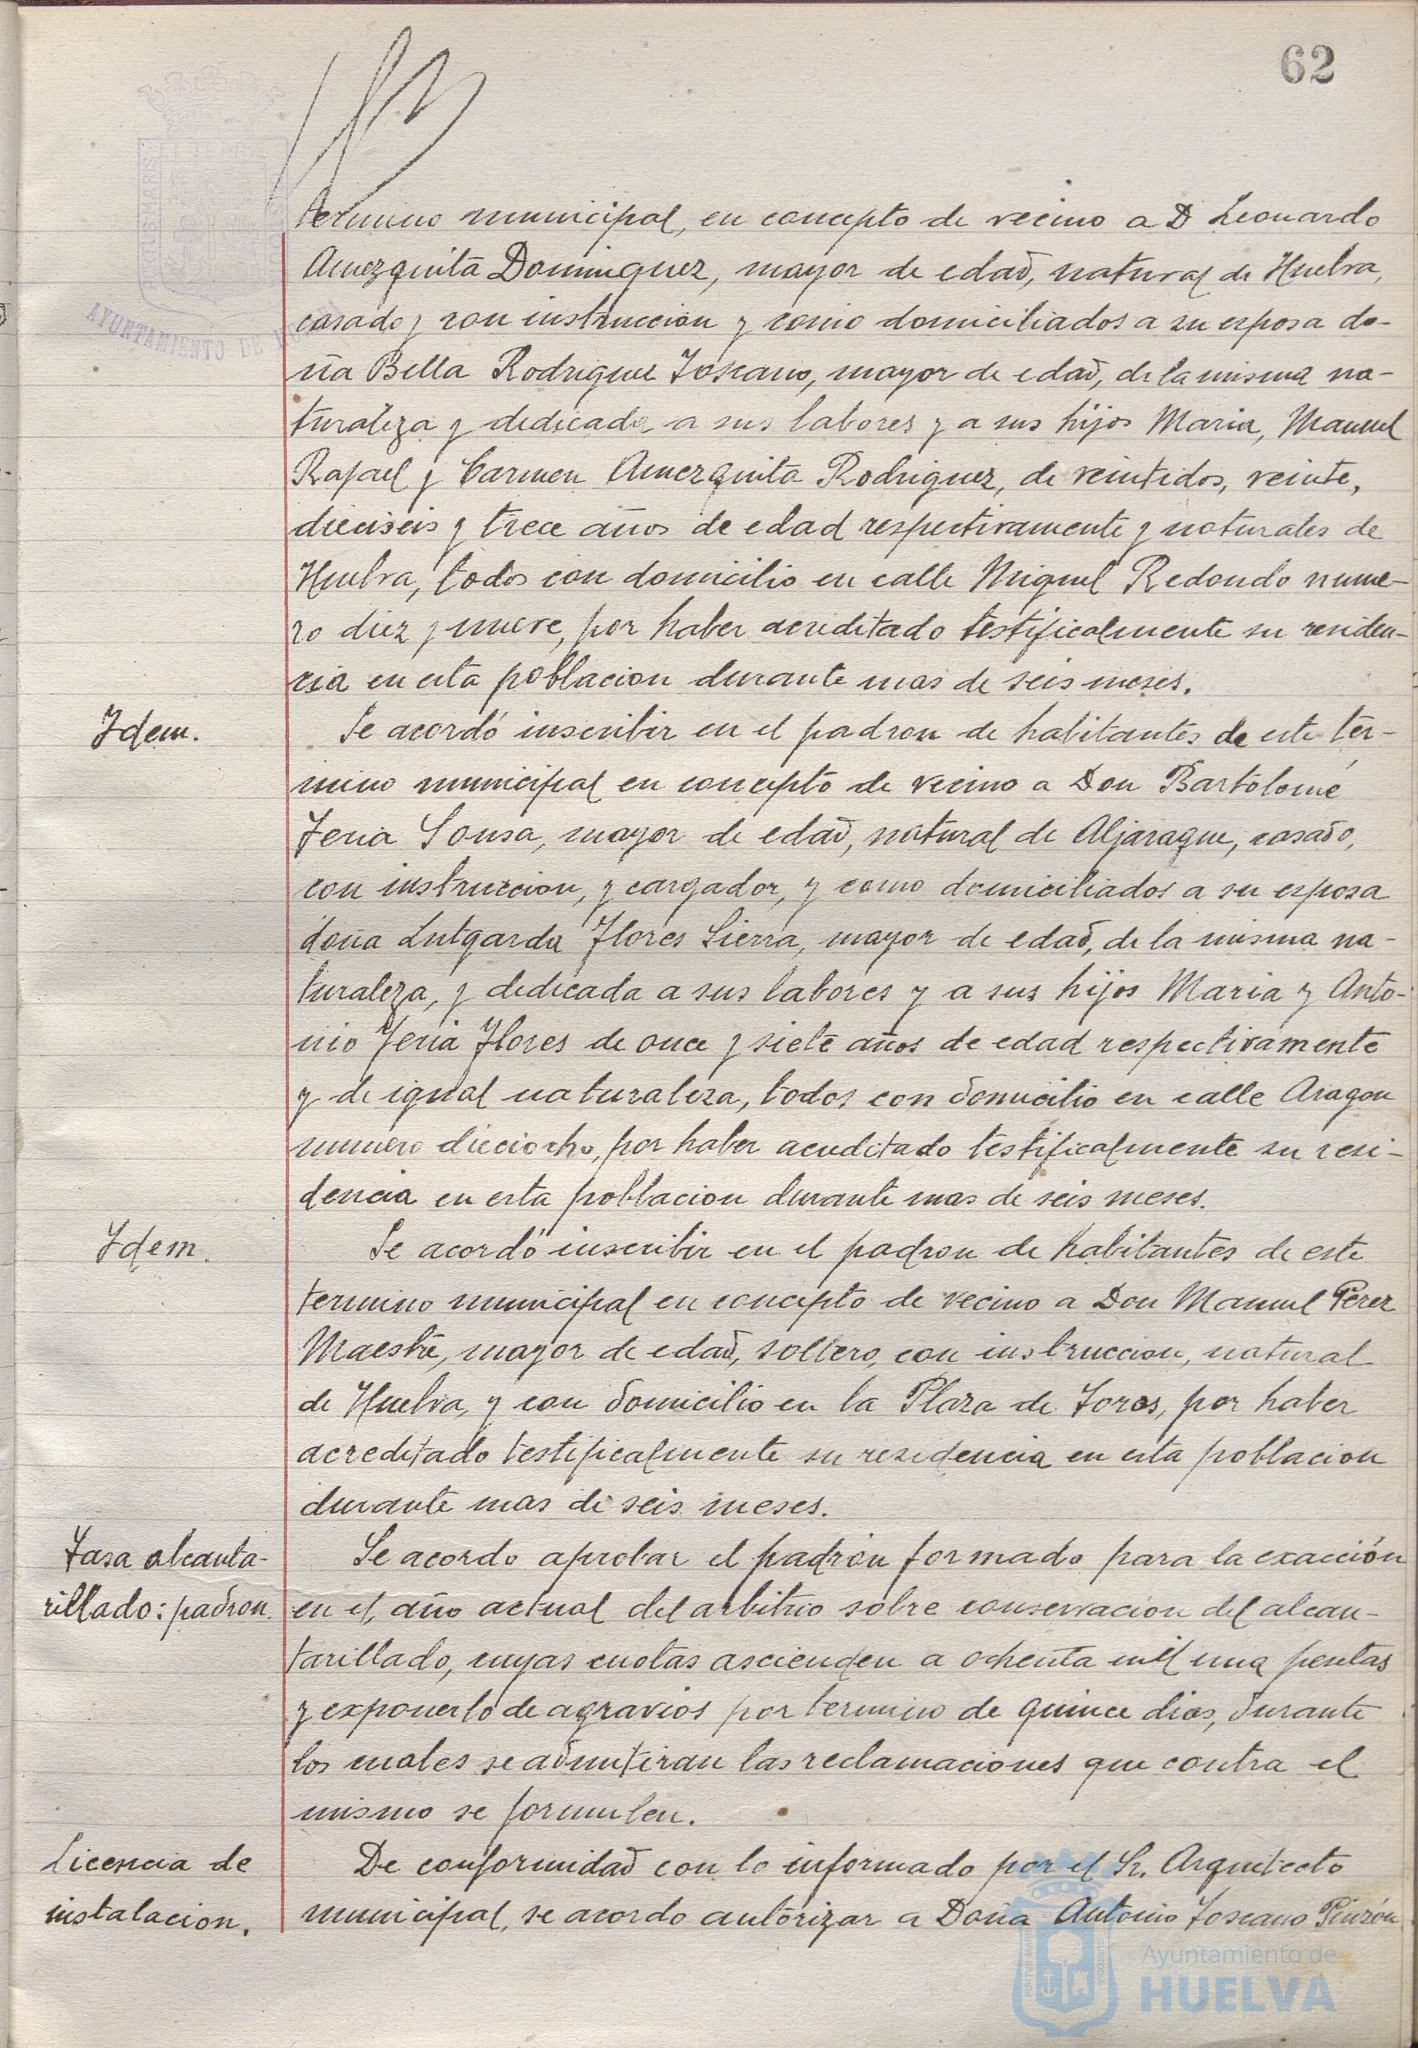 62
termino municipal, en concepto de vecino a D Leonardo
Amezquita Dominguez, mayor de edad, natural de Huelva,
casado y con instruccion y como domiciliados a su esposa do-
ña Bella Rodriguez Toscano, mayor de edad, de la misma na-
turaleza y dedicada a sus labores y a sus hijos Maria, Manuel
Rafael y Carmen Amezquita Rodriguez, de veintidos, veinte,
dieciseis y trece años de edad respectivamente y naturales de
Huelva, todos con domicilio en calle Miguel Redondo nume-
ro diez y nueve, por haber acreditado testificalmente su residen-
cia en esta poblacion durante mas de seis meses.
Idem.
Se acordó inscribir en el padron de habitantes de este tér-
mino municipal en concepto de vecino a Don Bartolomé
Feria Sousa, mayor de edad, natural de Aljaraque, casado,
con instruccion, y cargador, y como domiciliados a su esposa
doña Lutgarda Flores Sierra, mayor de edad, de la misma na-
turaleza, y dedicada a sus labores y a sus hijos Maria y Anto-
nio Feria Flores de once y siete años de edad respectivamente
y de igual naturaleza, todos con domicilio en calle Aragon
numero dieciocho, por haber acreditado testificalmente su resi-
dencia en esta poblacion durante mas de seis meses.
Idem.
Se acordó inscribir en el padron de habitantes de este
termino municipal en concepto de vecino a Don Manuel Pérez
Maestre, mayor de edad, soltero, con instruccion, natural
de Huelva, y con domicilio en la Plaza de Toros, por haber
acreditado testificalmente su residencia en esta poblacion
durante mas de seis meses.
Tasa alcanta-
rillado: padron.
Se acordo aprobar el padrón formado para la exacción
en el año actual del arbitrio sobre conservacion del alcan-
tarillado, cuyas cuotas ascienden a ochenta mil una pesetas
y exponerlo de agravios por termino de quince dias, durante
los cuales se admitiran las reclamaciones que contra el
mismo se formulen.
Licencia de
instalacion.
De conformidad con lo informado por el Sr. Arquitecto
municipal, se acordo autorizar a Doña Antonio Toscano Pinzón
AYUNTAMIENTO DE HUELVA
Ayuntamiento de
HUELVA